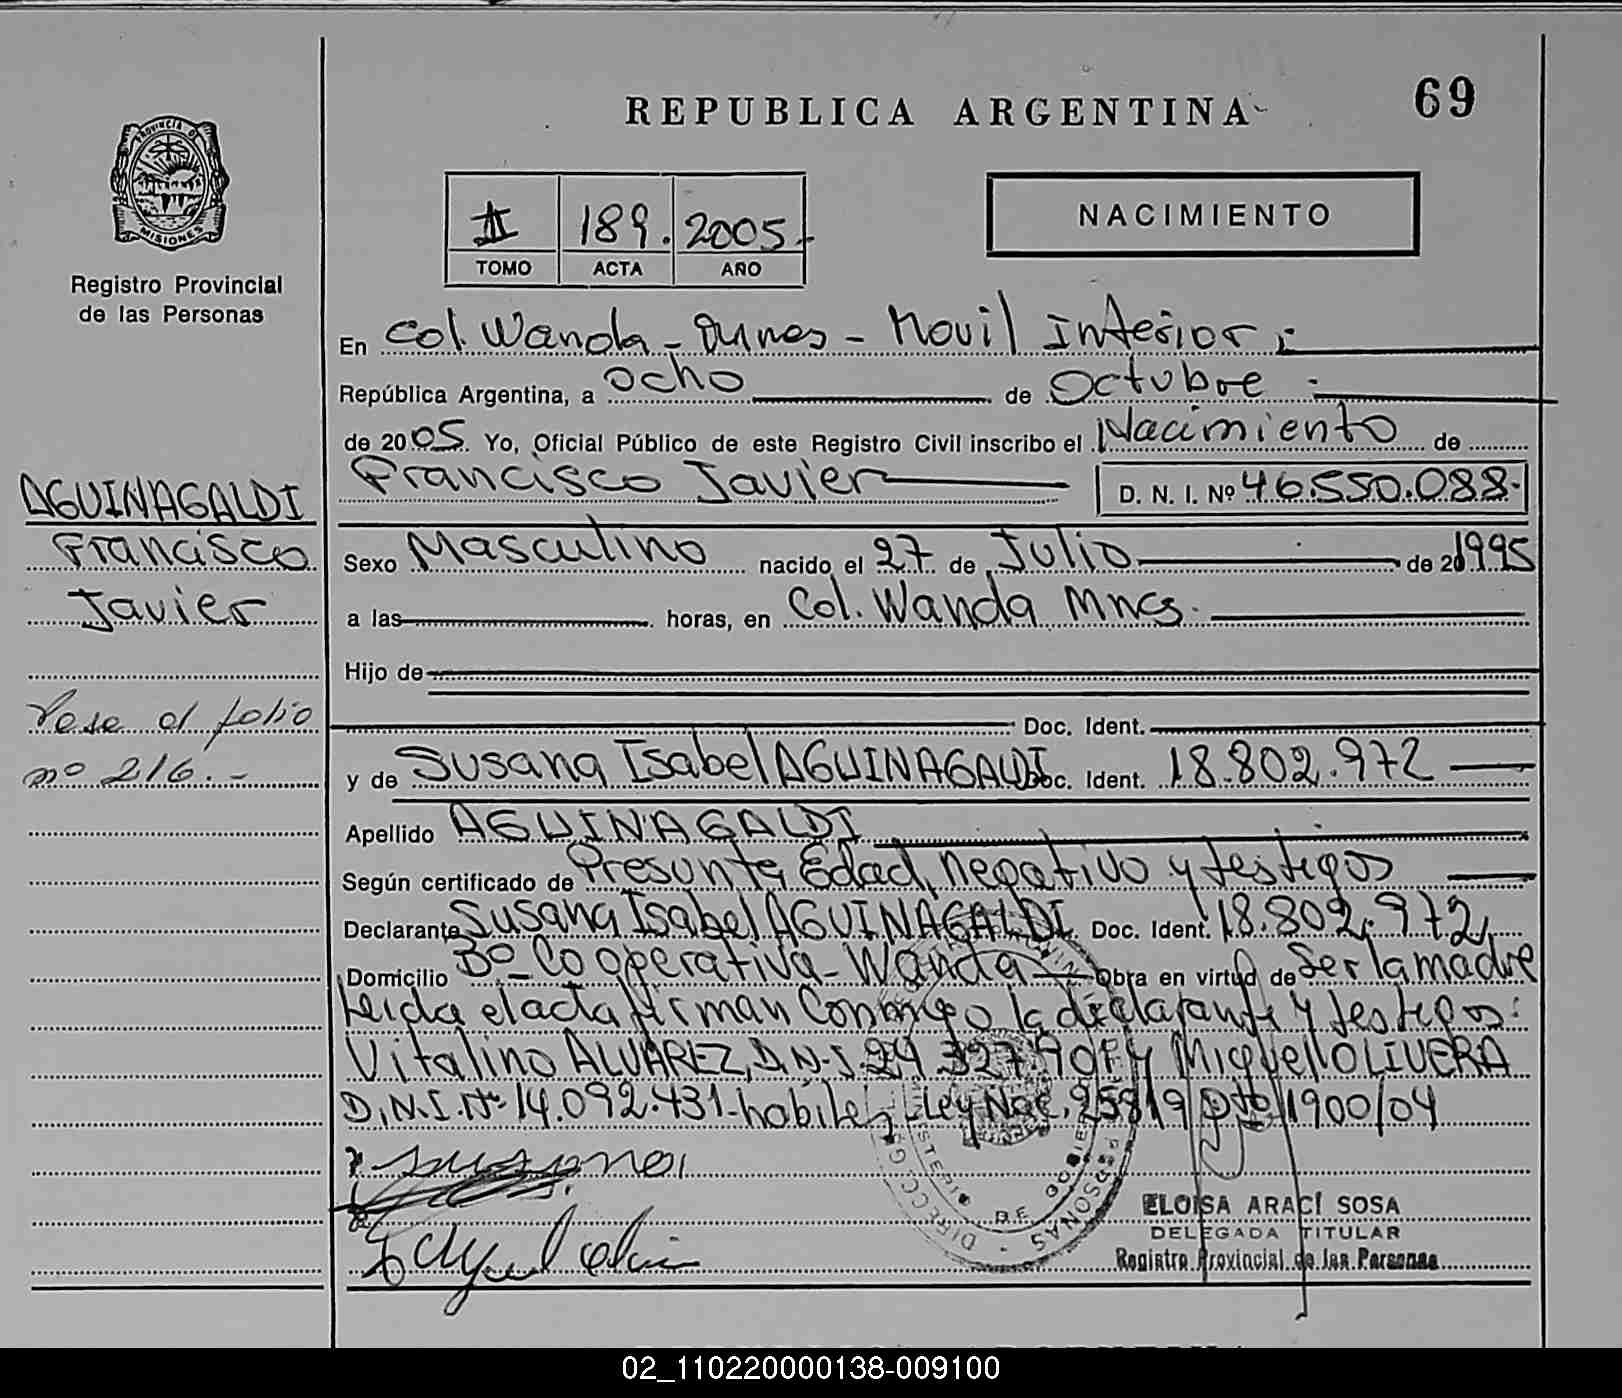 REPUBLICA ARGENTINA
69
PROVINCIA DE
MISIONES
Registro Provincial
de las Personas
II 189. 2005.-
TOMO ACTA AÑO
NACIMIENTO
En Col. Wanda - Mnes - Movil Interior :
República Argentina, a ocho de Octubre
de 2005. Yo, Oficial Público de este Registro Civil inscribo el Nacimiento de
Francisco Javier D. N. I. Nº 46.550.088-
AGUINAGALDI
Francisco
Javier
Sexo Masculino nacido el 27 de Julio de 20 1995
a las horas, en Col. Wanda Mnes.
Hijo de
Doc. Ident.
Pase al folio
nº 216.-
y de Susana Isabel AGUINAGALDI Doc. Ident. 18.802.972
Apellido AGUINAGALDI
Según certificado de Presunta Edad, negativo y testigos
Declarante Susana Isabel AGUINAGALDI Doc. Ident. 18.802.972
Domicilio Bº Cooperativa - Wanda Obra en virtud de Ser la madre
Leida el acta firman Conmigo la declarante y testigos:
Vitalino ALVAREZ, D.N.I. 24.327.901 y Miguel OLIVERA
D.N.I. Nº 14.092.431- habiles, Ley Nac. 25819 Dto 1900/04
Susana
ELOISA ARACÍ SOSA
DELEGADA TITULAR
Registro Provincial de las Personas
02_110220000138-009100